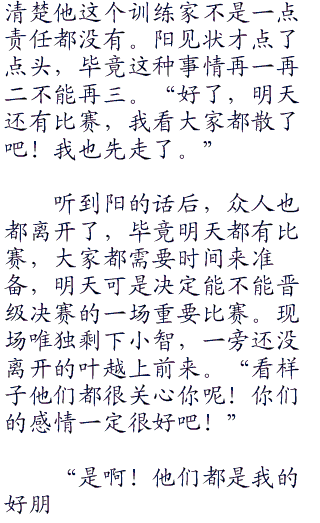 清楚他这个训练家不是一点
责任都没有。阳见状才点了
点头，毕竟这种事情再一再
二不能再三。“好了，明天
还有比赛，我看大家都散了
吧！我也先走了。”
听到阳的话后，众人也
都离开了，毕竟明天都有比
赛，大家都需要时间来准
备，明天可是决定能不能晋
级决赛的一场重要比赛。现
场唯独剩下小智，一旁还没
离开的叶越上前来。“看样
子他们都很关心你呢！你们
的感情一定很好吧！”
“是啊！他们都是我的
好朋